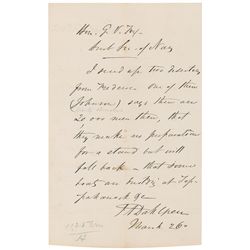 Hon. G. V. Fox
Asst Sec. of Navy
I send up two deserters
from Frederic one of them
(Johnson) says there are
20.000 men there, that
they make no preparation
for a stand but will
fall back - that some
boats are building at Tap-
pahannock &c
J A Dahlgren
March 26